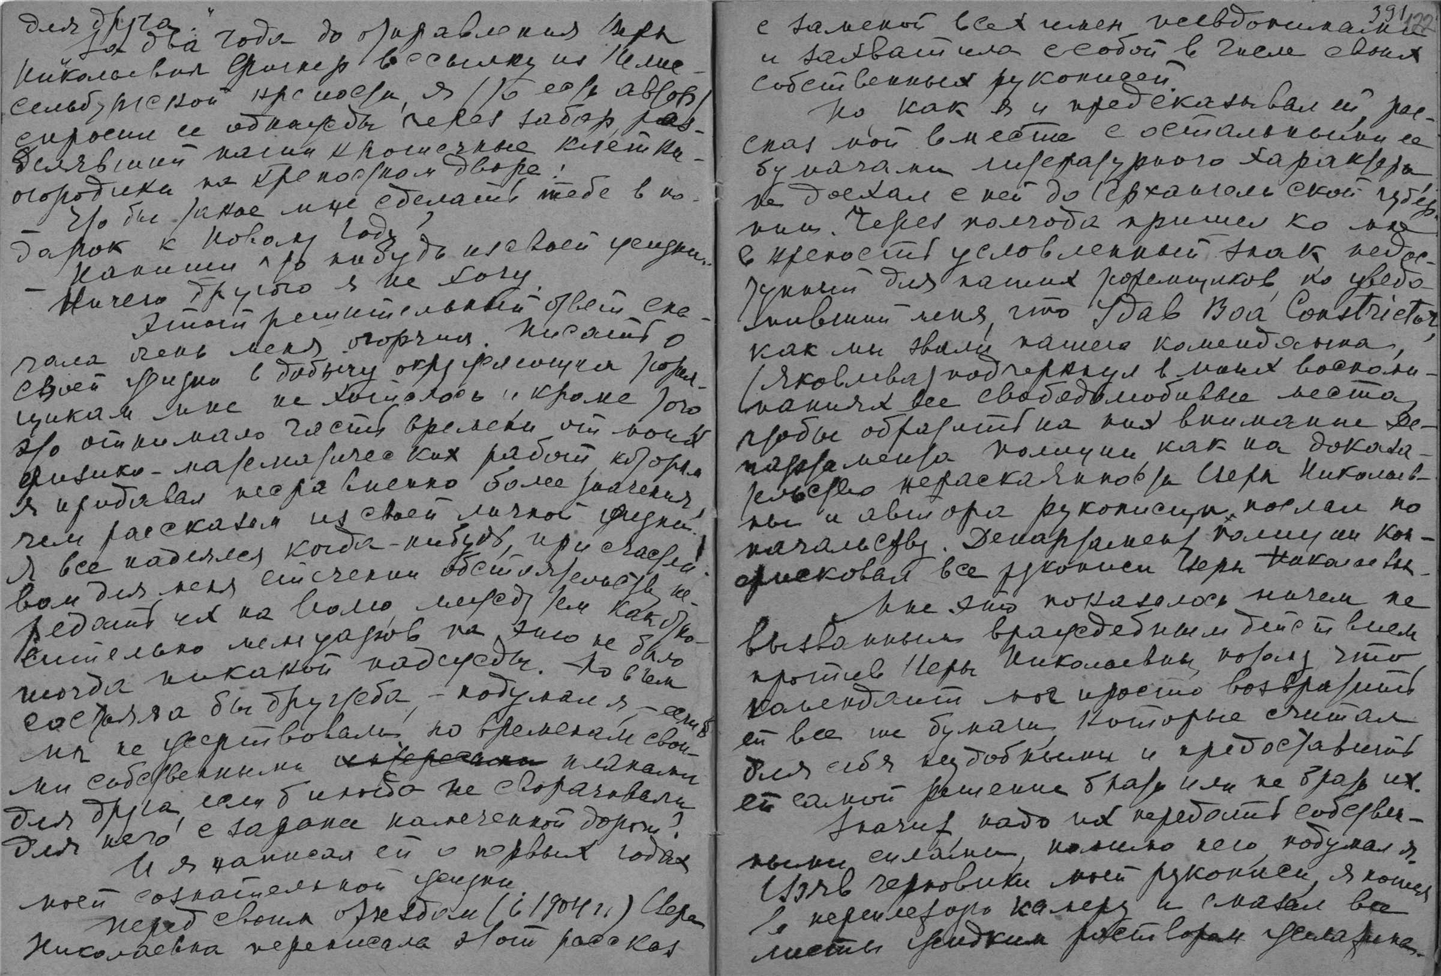 для друга."
За два года до отправления Веры
Николаевны Фигнер в ссылку из Шлис-
сельбургской крепости, я (то есть автор)
спросил ее однажды через забор раз-
делявший наши крошечные клетки-
огородики на крепостном дворе:
Что бы такое мне сделать тебе в по-
дарок к Новому году?
— Напиши что нибудь из своей жизни.
— Ничего другого я не хочу.
Этот решительный ответ сна-
чала очень меня огорчил. Писать о
своей жизни в добычу окружающим тюрем-
щикам мне не хотелось и кроме того
это отнимало часть времени от моих
физико-математических работ, которым
я придавал несравненно более значения,
чем рассказам из своей личной жизни.
Я все надеялся когда-нибудь, при счастли-
вом для меня стечении обстоятельств пе-
редать их на волю, между тем как отно-
сительно мемуаров на это не было
тогда никакой надежды. Но в чем
состояла бы дружба, — подумал я, — если б
мы не жертвовали по временам свои-
ми собственными интересами планами
для друга, если б иногда не сворачивали
для него с заранее намеченной дороги?
И я написал ей о первых годах
моей сознательной жизни.
Перед своим отъездом (в 1904 г.) Вера
Николаевна переписала этот рассказ
391
122
с заменой всех имен псевдонимами
и захватила с собой в числе своих
собственных рукописей.
Но, как я и предсказывал ей, рас-
сказ мой вместе с остальными ее
бумагами литературного характера
не доехал с ней до Архангельской губер-
нии. Через полгода пришел ко мне
в крепость условленный знак недос-
тупный для наших тюремщиков, но уведо-
мивший меня, что Удав Boa Constrictor,
как мы звали нашего коменданта,
(Яковлева) подчеркнул в моих воспоми-
наниях все свободолюбивые места,
чтобы обратить на них внимание Де-
партамента полиции как на доказа-
тельство нераскаянности Веры Николаев-
ны и автора рукописи и послал по
начальству. Департамент полиции кон-
фисковал все рукописи Веры Николаевны.
Мне это показалось ничем не
вызванным враждебным действием
против Веры Николаевны, потому что
комендант мог просто возвратить
ей все те бумаги, которые считал
для себя неудобными и предоставить
ей самой решение брать или не брать их.
Значит, надо их передать собствен-
ными силами, помимо него, подумал я.
Взяв черновики моей рукописи, я пошел
в переплетную камеру и смазал все
листы жидким раствором желатина.